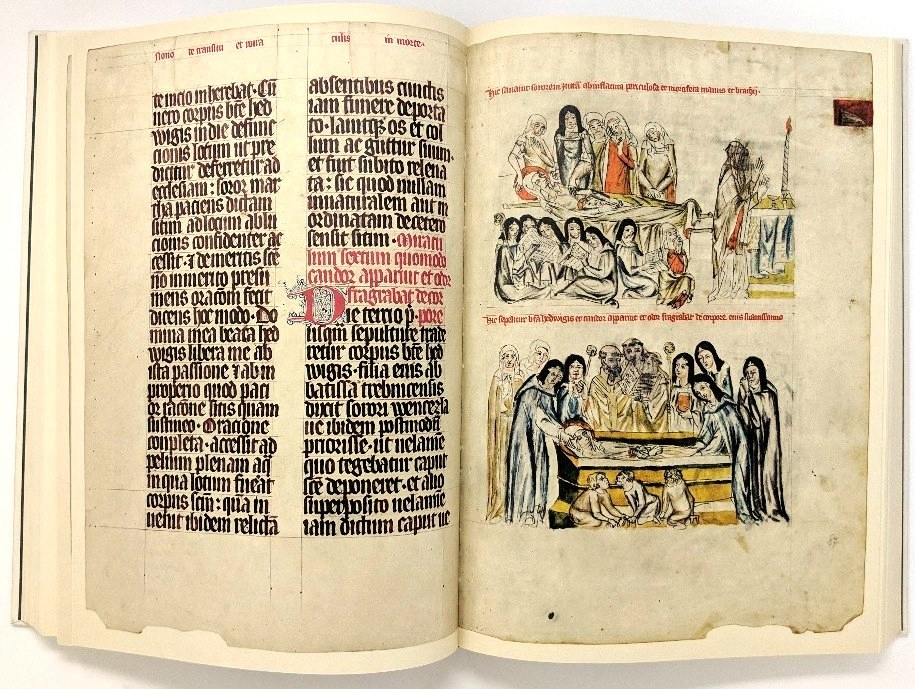 te transitu et mira culis in morte ·
te incio inherebat · Cū
uero corpus bt̄e hed
wigis in die defunc
cionis lotum ut pre
dicitur deferretur ad
ecclesiam : soror mar
tha paciens dictam
sitim ad locum ablu
cionis confidenter ac
cessit · ⁊ de meritis
nō inmerito presu
mens oracōem fecit
dicens hoc modo · Do
mina mea beata hed
wigis libera me ab
ista passione ⁊ ab im
properio quod paci
or racōne sitis quam
sustineo · Oracione
completa · accessit ad
peluim plenam aq̄
in qua lotum fuerat
corpus scm̄ : qua in
uenit ibidem relictā
absentibus cunctis
iam funere deporta
to · lauitqꝫ os et col
lum ac guttur suum ·
et fuit subito releua
ta : sic quod nullam
innaturalem aut in
ordinatam de cetero
sensit sitim · Miracu
lum sextum quomodo
candor apparuit et odor
fragrabat de cor
Die tercio p̄ · pore
sepulture trade
retur corpus bt̄e hed
wigis · filia eius ab
batissa trebnicensis
dixit sorori wencezla
ue ibidem postmodū
priorisse · ut uelamē
quo tegebatur caput
sc̄e deponeret · et alio
superposito uelamie
iam dictum caput ue
Hic sanatur sororem ab inflactura periculosa manus et brachij ·
Hic sepelitur bt̄a hedwigis et candor apparuit et odor fragrabat de corpore eius suauissimus